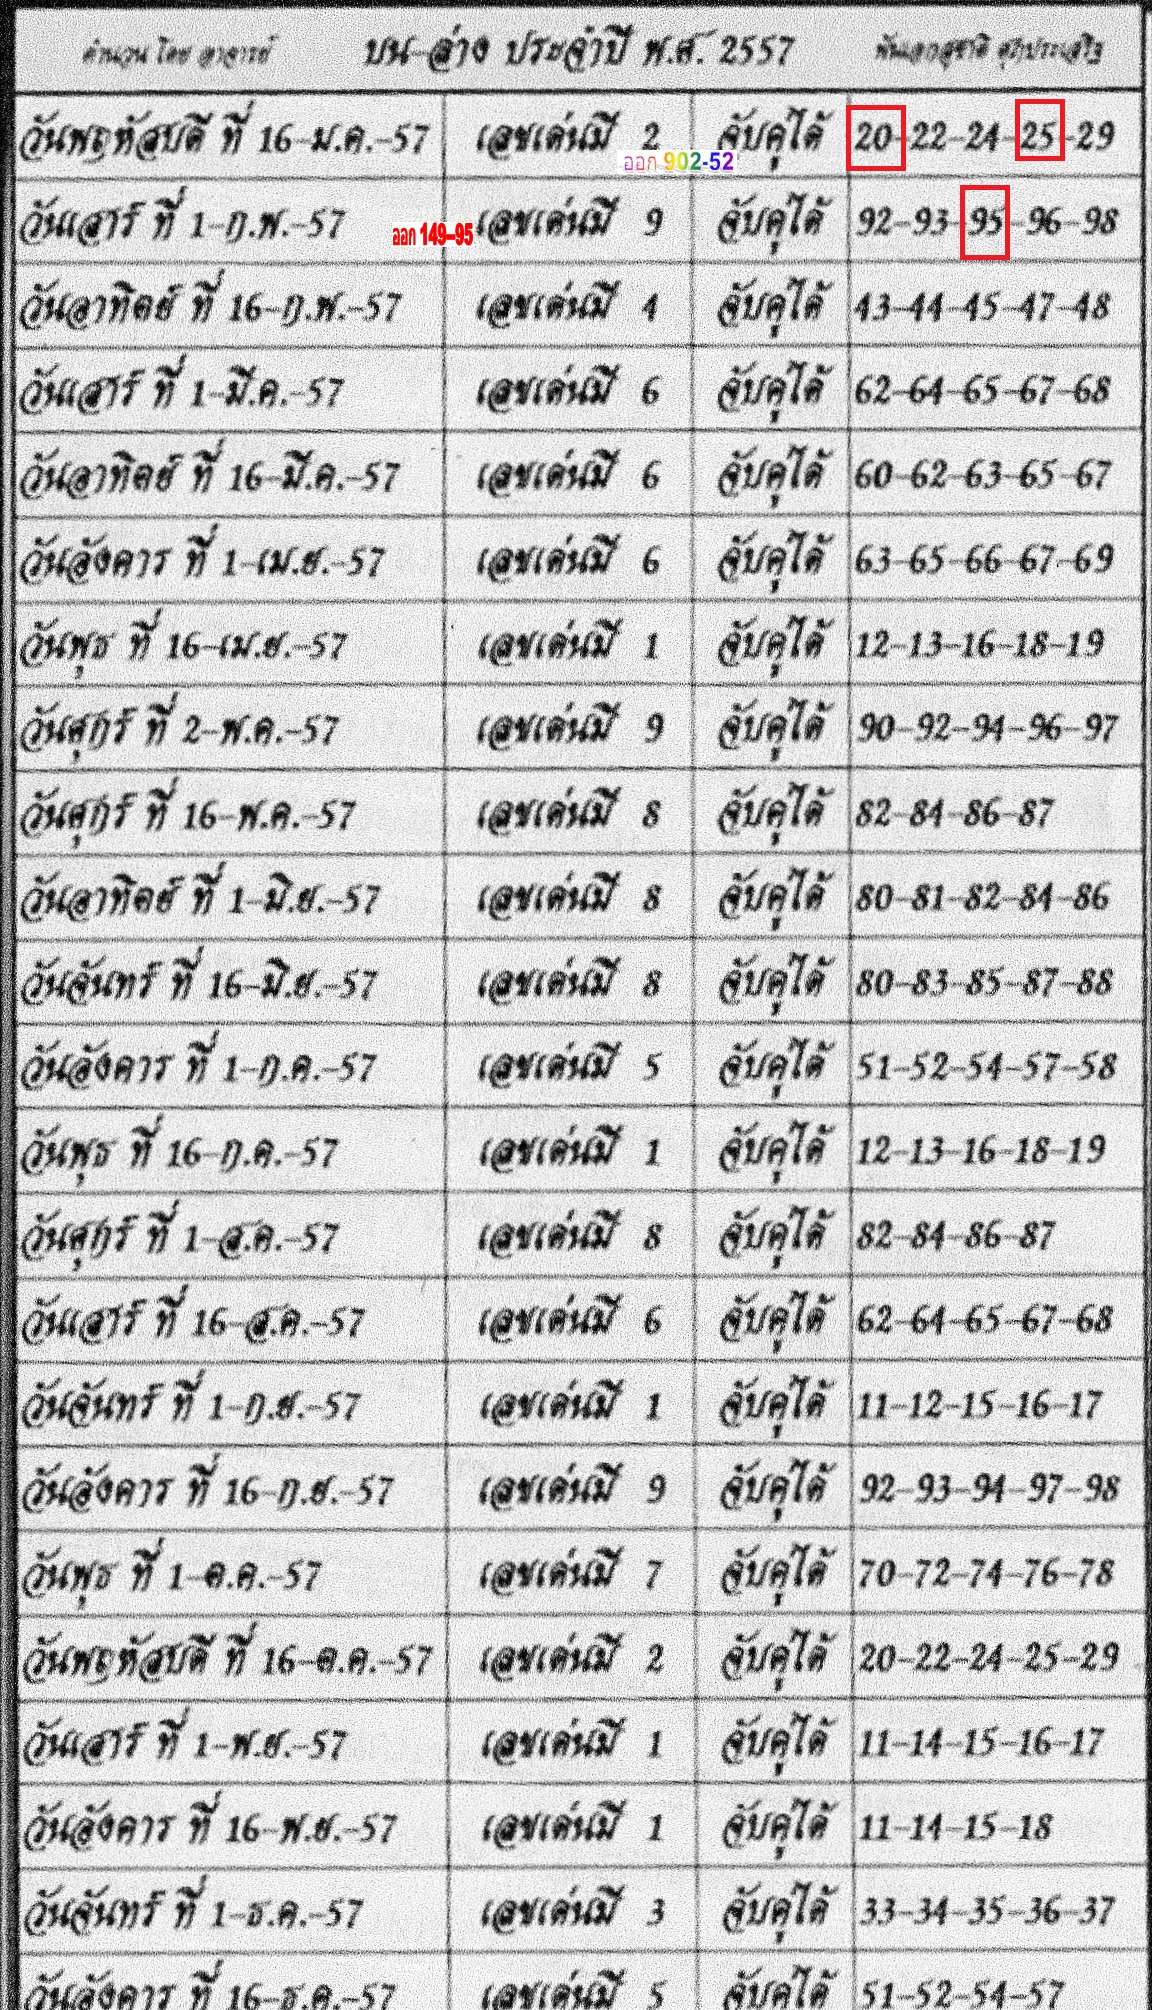 คำนวน โดย อาจารย์ บน-ล่าง ประจำปี พ.ศ. 2557 พันเอกสุชาติ
วันพฤหัสบดี ที่ 16-ม.ค.-57 เลขเด่นมี 2 จับคู่ได้ 20-22-24-25-29
ออก 902-52
วันเสาร์ ที่ 1-ก.พ.-57 เลขเด่นมี 9 จับคู่ได้ 92-93-95-96-98
ออก 149-95
วันอาทิตย์ ที่ 16-ก.พ.-57 เลขเด่นมี 4 จับคู่ได้ 43-44-45-47-48
วันเสาร์ ที่ 1-มี.ค.-57 เลขเด่นมี 6 จับคู่ได้ 62-64-65-67-68
วันอาทิตย์ ที่ 16-มี.ค.-57 เลขเด่นมี 6 จับคู่ได้ 60-62-63-65-67
วันอังคาร ที่ 1-เม.ย.-57 เลขเด่นมี 6 จับคู่ได้ 63-65-66-67-69
วันพุธ ที่ 16-เม.ย.-57 เลขเด่นมี 1 จับคู่ได้ 12-13-16-18-19
วันศุกร์ ที่ 2-พ.ค.-57 เลขเด่นมี 9 จับคู่ได้ 90-92-94-96-97
วันศุกร์ ที่ 16-พ.ค.-57 เลขเด่นมี 8 จับคู่ได้ 82-84-86-87
วันอาทิตย์ ที่ 1-มิ.ย.-57 เลขเด่นมี 8 จับคู่ได้ 80-81-82-84-86
วันจันทร์ ที่ 16-มิ.ย.-57 เลขเด่นมี 8 จับคู่ได้ 80-83-85-87-88
วันอังคาร ที่ 1-ก.ค.-57 เลขเด่นมี 5 จับคู่ได้ 51-52-54-57-58
วันพุธ ที่ 16-ก.ค.-57 เลขเด่นมี 1 จับคู่ได้ 12-13-16-18-19
วันศุกร์ ที่ 1-ส.ค.-57 เลขเด่นมี 8 จับคู่ได้ 82-84-86-87
วันเสาร์ ที่ 16-ส.ค.-57 เลขเด่นมี 6 จับคู่ได้ 62-64-65-67-68
วันจันทร์ ที่ 1-ก.ย.-57 เลขเด่นมี 1 จับคู่ได้ 11-12-15-16-17
วันอังคาร ที่ 16-ก.ย.-57 เลขเด่นมี 9 จับคู่ได้ 92-93-94-97-98
วันพุธ ที่ 1-ต.ค.-57 เลขเด่นมี 7 จับคู่ได้ 70-72-74-76-78
วันพฤหัสบดี ที่ 16-ต.ค.-57 เลขเด่นมี 2 จับคู่ได้ 20-22-24-25-29
วันเสาร์ ที่ 1-พ.ย.-57 เลขเด่นมี 1 จับคู่ได้ 11-14-15-16-17
วันอังคาร ที่ 16-พ.ย.-57 เลขเด่นมี 1 จับคู่ได้ 11-14-15-18
วันจันทร์ ที่ 1-ธ.ค.-57 เลขเด่นมี 3 จับคู่ได้ 33-34-35-36-37
วันอังคาร ที่ 16-ธ.ค.-57 เลขเด่นมี 5 จับคู่ได้ 51-52-54-57